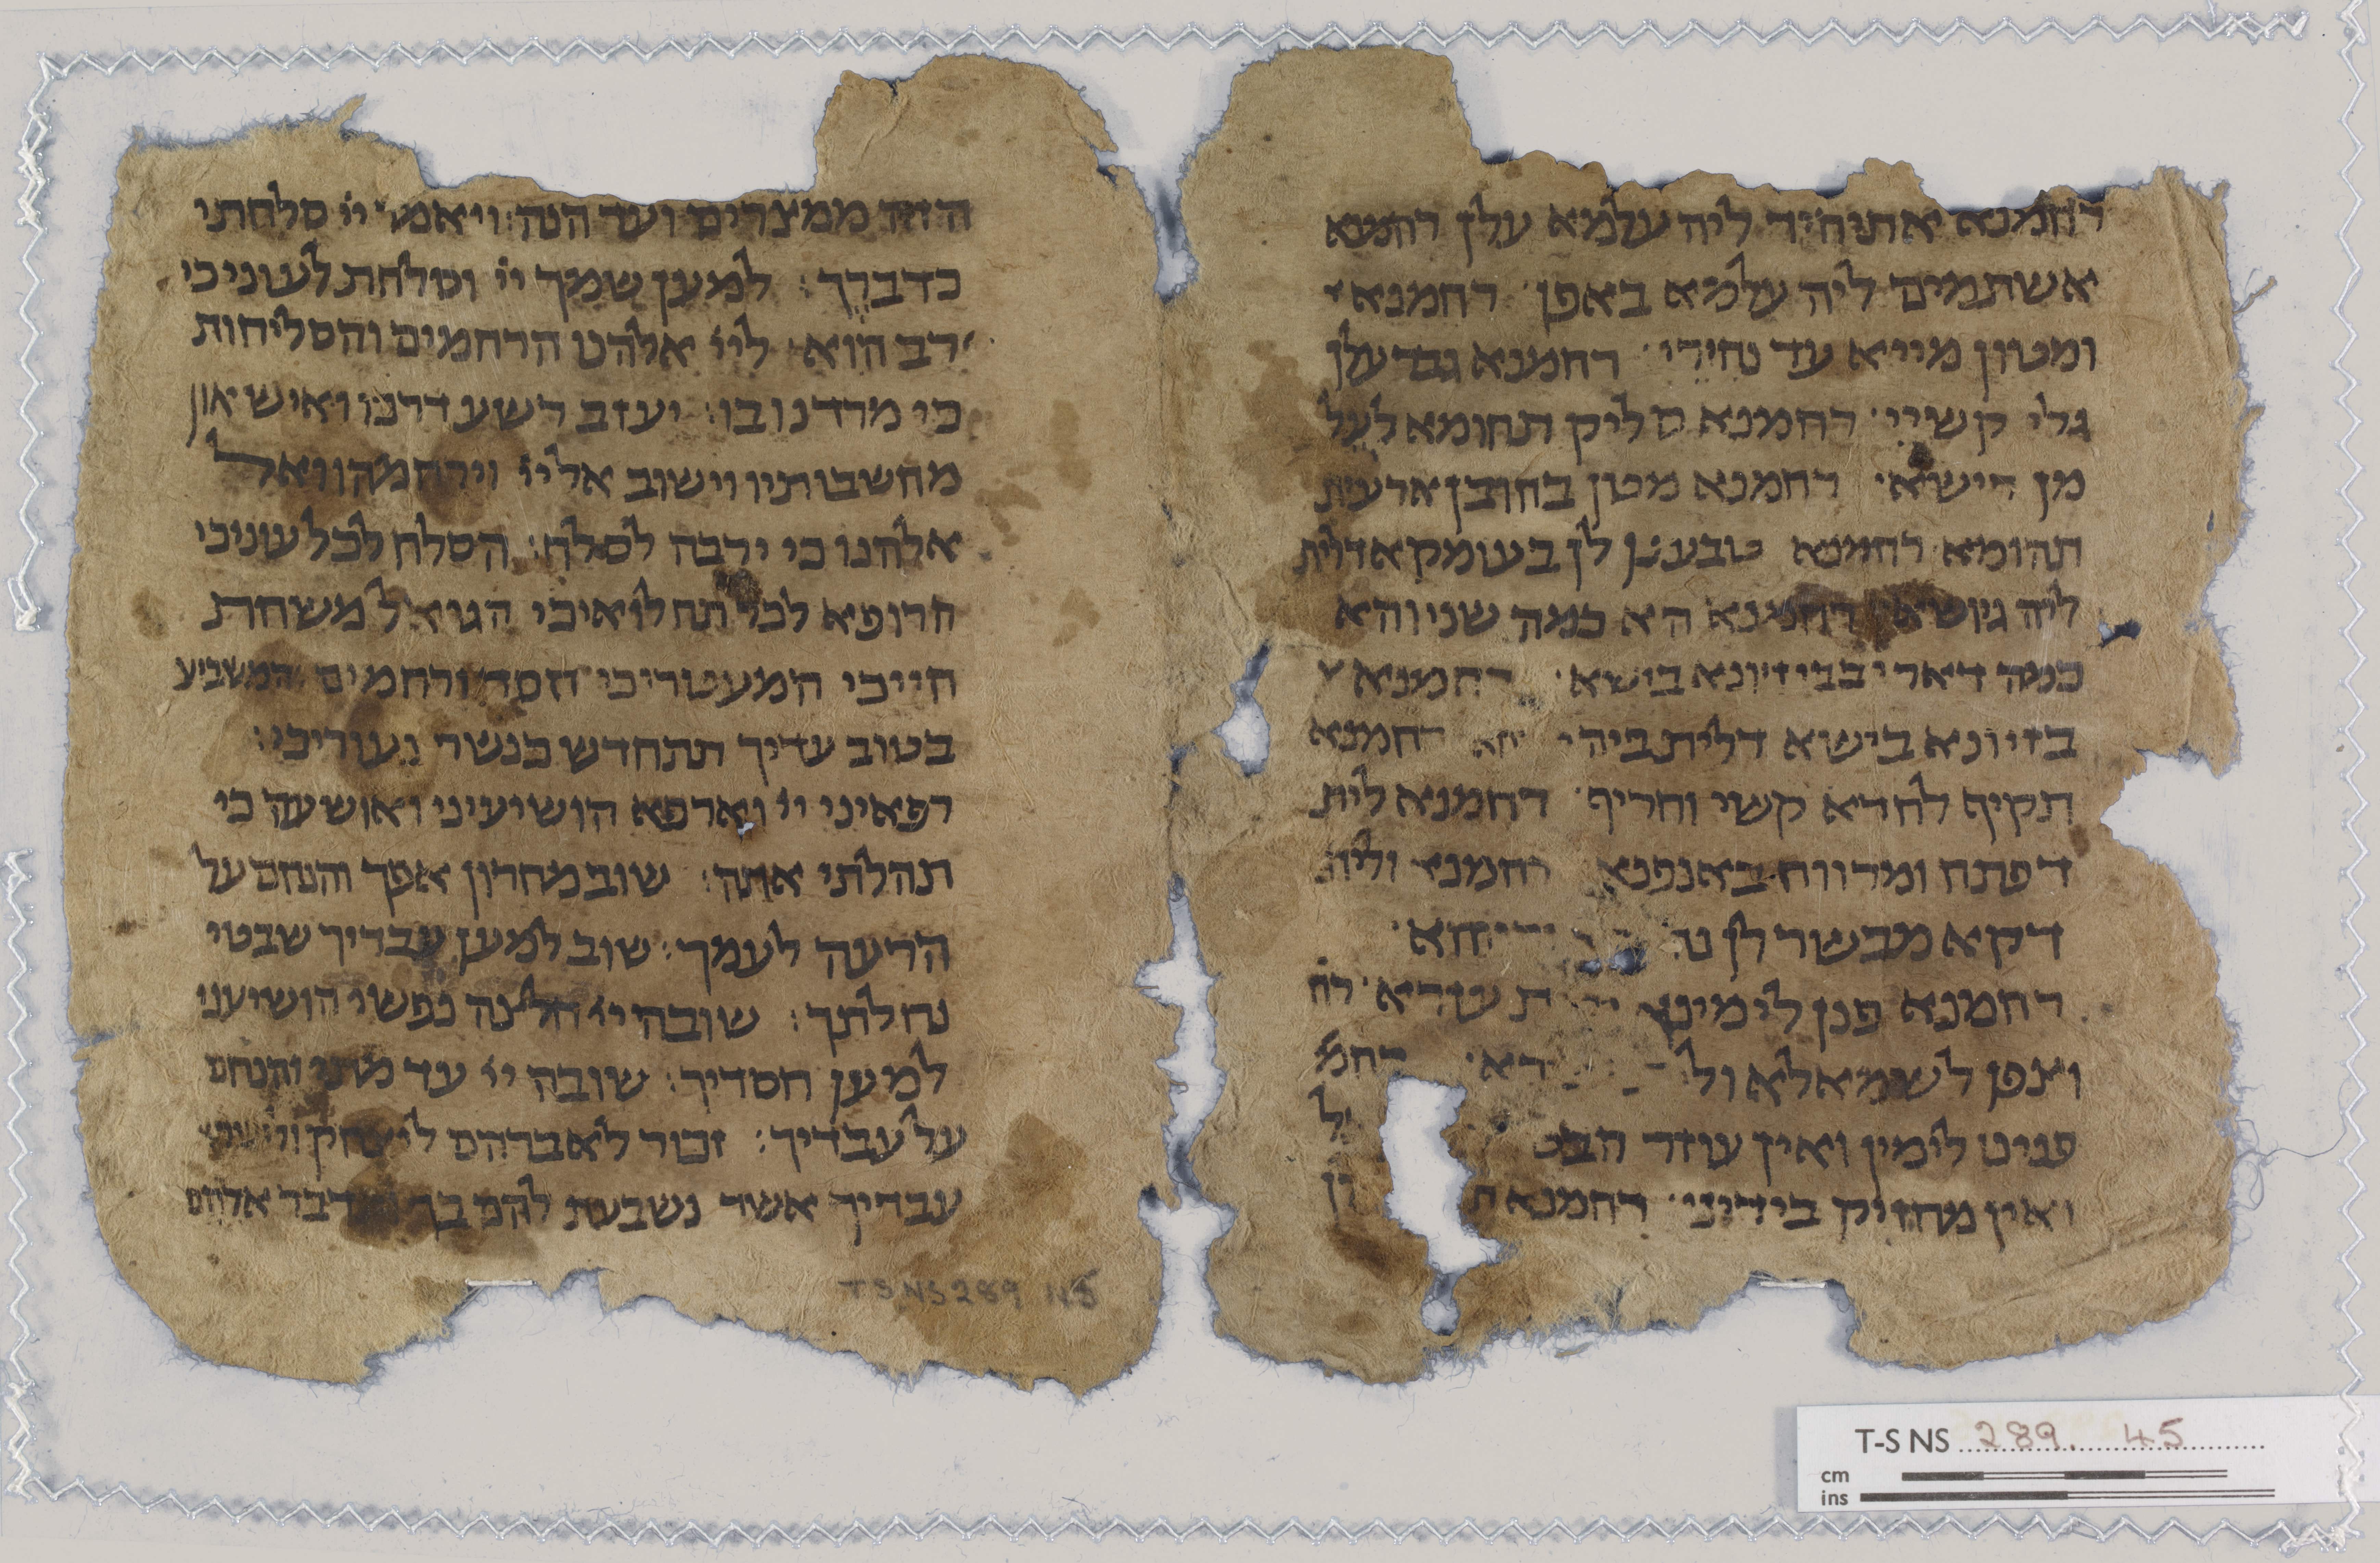 רחמנא אתיחיד ליה עלמא עלן רחמנא
אשתמים ליה עלמא באפן רחמנא
ומטון מייא עד נחירי רחמנא גבר עלן
גלי קשיי רחמנא סליק תהומא לעל
מן רישא רחמנא מטן בחובן ארעית
תהומא רחמנא טבענן לן בעומק אדלית
ליה רחמנא הא כמה שני והא
כמה דארי בבי זיונא בישא רחמנא
בזיונא בישא דלית ביה רחמנא
תקיף לחדא קשי וחריף רחמנא לית
דפתח ומרווח באנפנא רחמנא ולית
דקא מבשר לן
רחמנא פנן לימינא עזרא רח
ופנן לשמאלא רחמ
פנינו לימין ואין עוזר
ואין מחזיק בידינו רחמנא
הזה ממצרים ועד הנה׃ ויאמר יי סלחתי
כדברך׃ למען שמך יי וסלחת לעוני כי
רב הוא ליי אלהנו הרחמים והסליחות
כי מרדנו בו׃ יעזב רשע דרכו ואיש און
מחשבותיו וישוב אל יי וירחמהו ואל
אלהנו כי ירבה לסלח׃ הסלח לכל עוניכי
הרופא לכל תחלואיכי הגואל משחת
חייכי המעטריכי חסד ורחמים המשביע
בטוב עדיך תתחדש כנשר נעוריכי׃
רפאיני יי וארפא הושיעיני ואושעה כי
תהלתי אתה׃ שוב מחרון אפך והנחם על
הרעה לעמך׃ שוב למען עבדיך שבטי
נחלתך׃ שובה יי חלצה נפשי הושיעני
למען חסדיך׃ שובה יי עד מתי והנחם
על עבדיך׃ זכור לאברהם ליצחק ולישראל
עבדיך אשר נשבעת להם בך ותדבר אלהם
T-S NS 289 45
T-S NS 289. 45
cm
ins